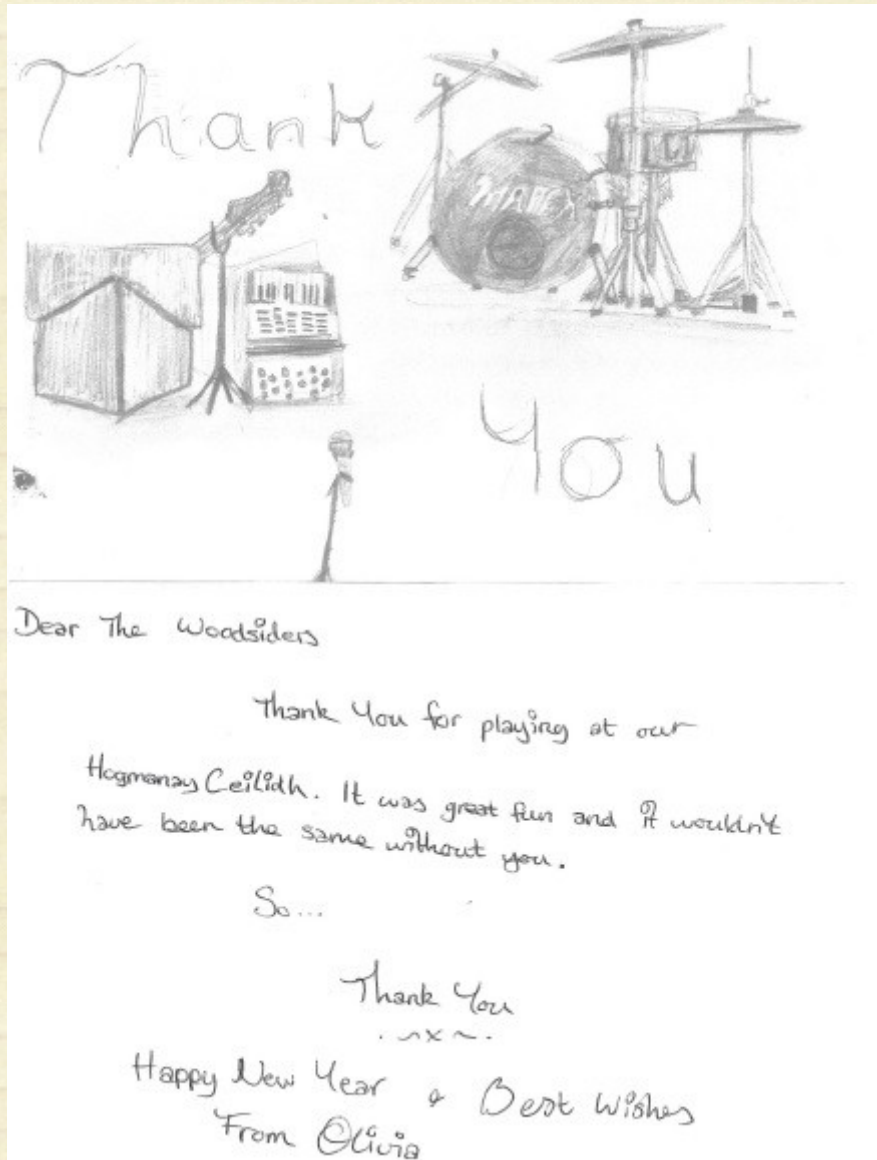 Thank
You
Dear The Woodsiders
Thank You for playing at our
Hogmanay Ceilidh. It was great fun and it wouldn't
have been the same without you.
So...
Thank You
Happy New Year & Best Wishes
From Olivia